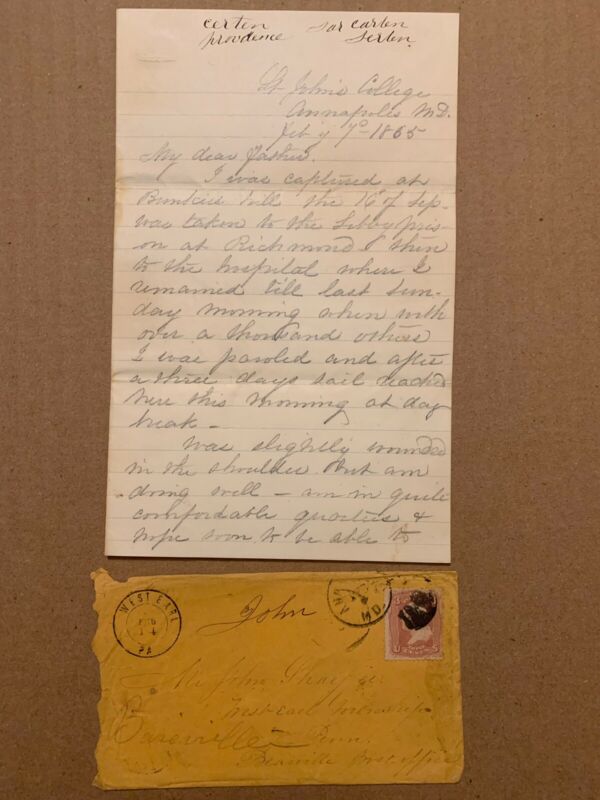 certen sor carten
provdence serten
St Johns College
Annapolis M.D.
Feb'y 7th 1865
My dear Father.
I was captured at
Bunkur hill the 16 of Sep.
was taken to the Libby pris-
on at Richmond & then
to the hospital where I
remained till last Sun-
day morning when with
over a thousand others
I was paroled and after
a three days sail reached
here this morning at day
break -
Was slightly wounded
in the shoulder but am
doing well - am in quite
comfordable quarters &
hope soon to be able to
WEST EARL
FEB
14
PA
John
ANN
MD.
U S
Mr John
West earl township
Bareville Penn.
post office